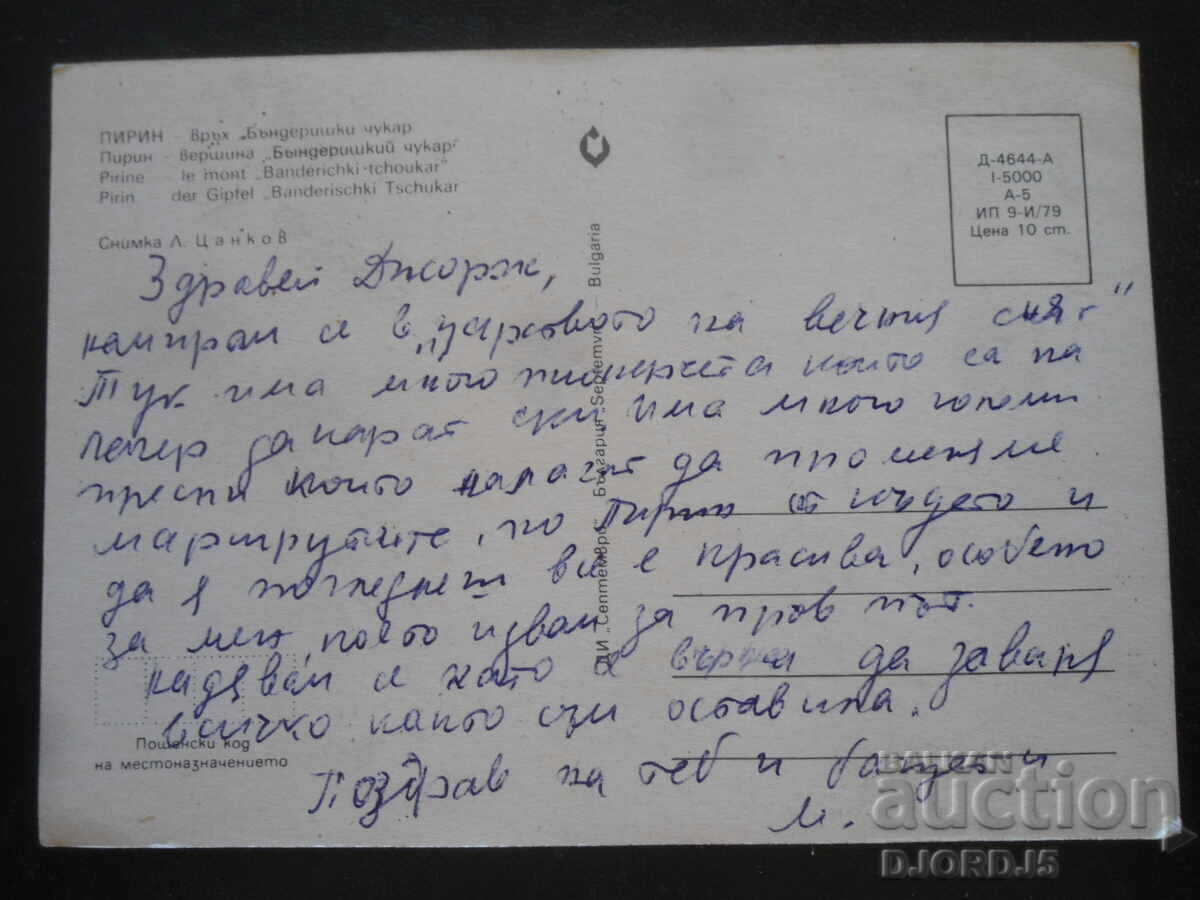 ПИРИН - връх „Бъндеришки чукар
Пирин - вершина „Бындеришкий чукар"
Pirine - le mont „Banderichki-tchoukar"
Pirin - der Gipfel „Banderischki Tschukar
Снимка Л. Цанков
Д-4644-А
I-5000
А-5
ИП 9-И/79
Цена 10 ст.
ДИ „Септември", България „Septemvri" - Bulgaria
Здравей Джордж,
намирам се в „царството на вечния сняг"
Тук има много пионерчета които са на
лагер да карат ски има много големи
преспи които налагат да променяме
маршрутите, но Пирин от където и
да я погледнеш все е красива, особено
за мен, който идвам за пръв път.
надявам се като се върна да заваря
всичко както съм оставила.
Поздрав на теб и
М.
Пощенски код
на местоназначението
BALKAN
auction
DJORDJ5